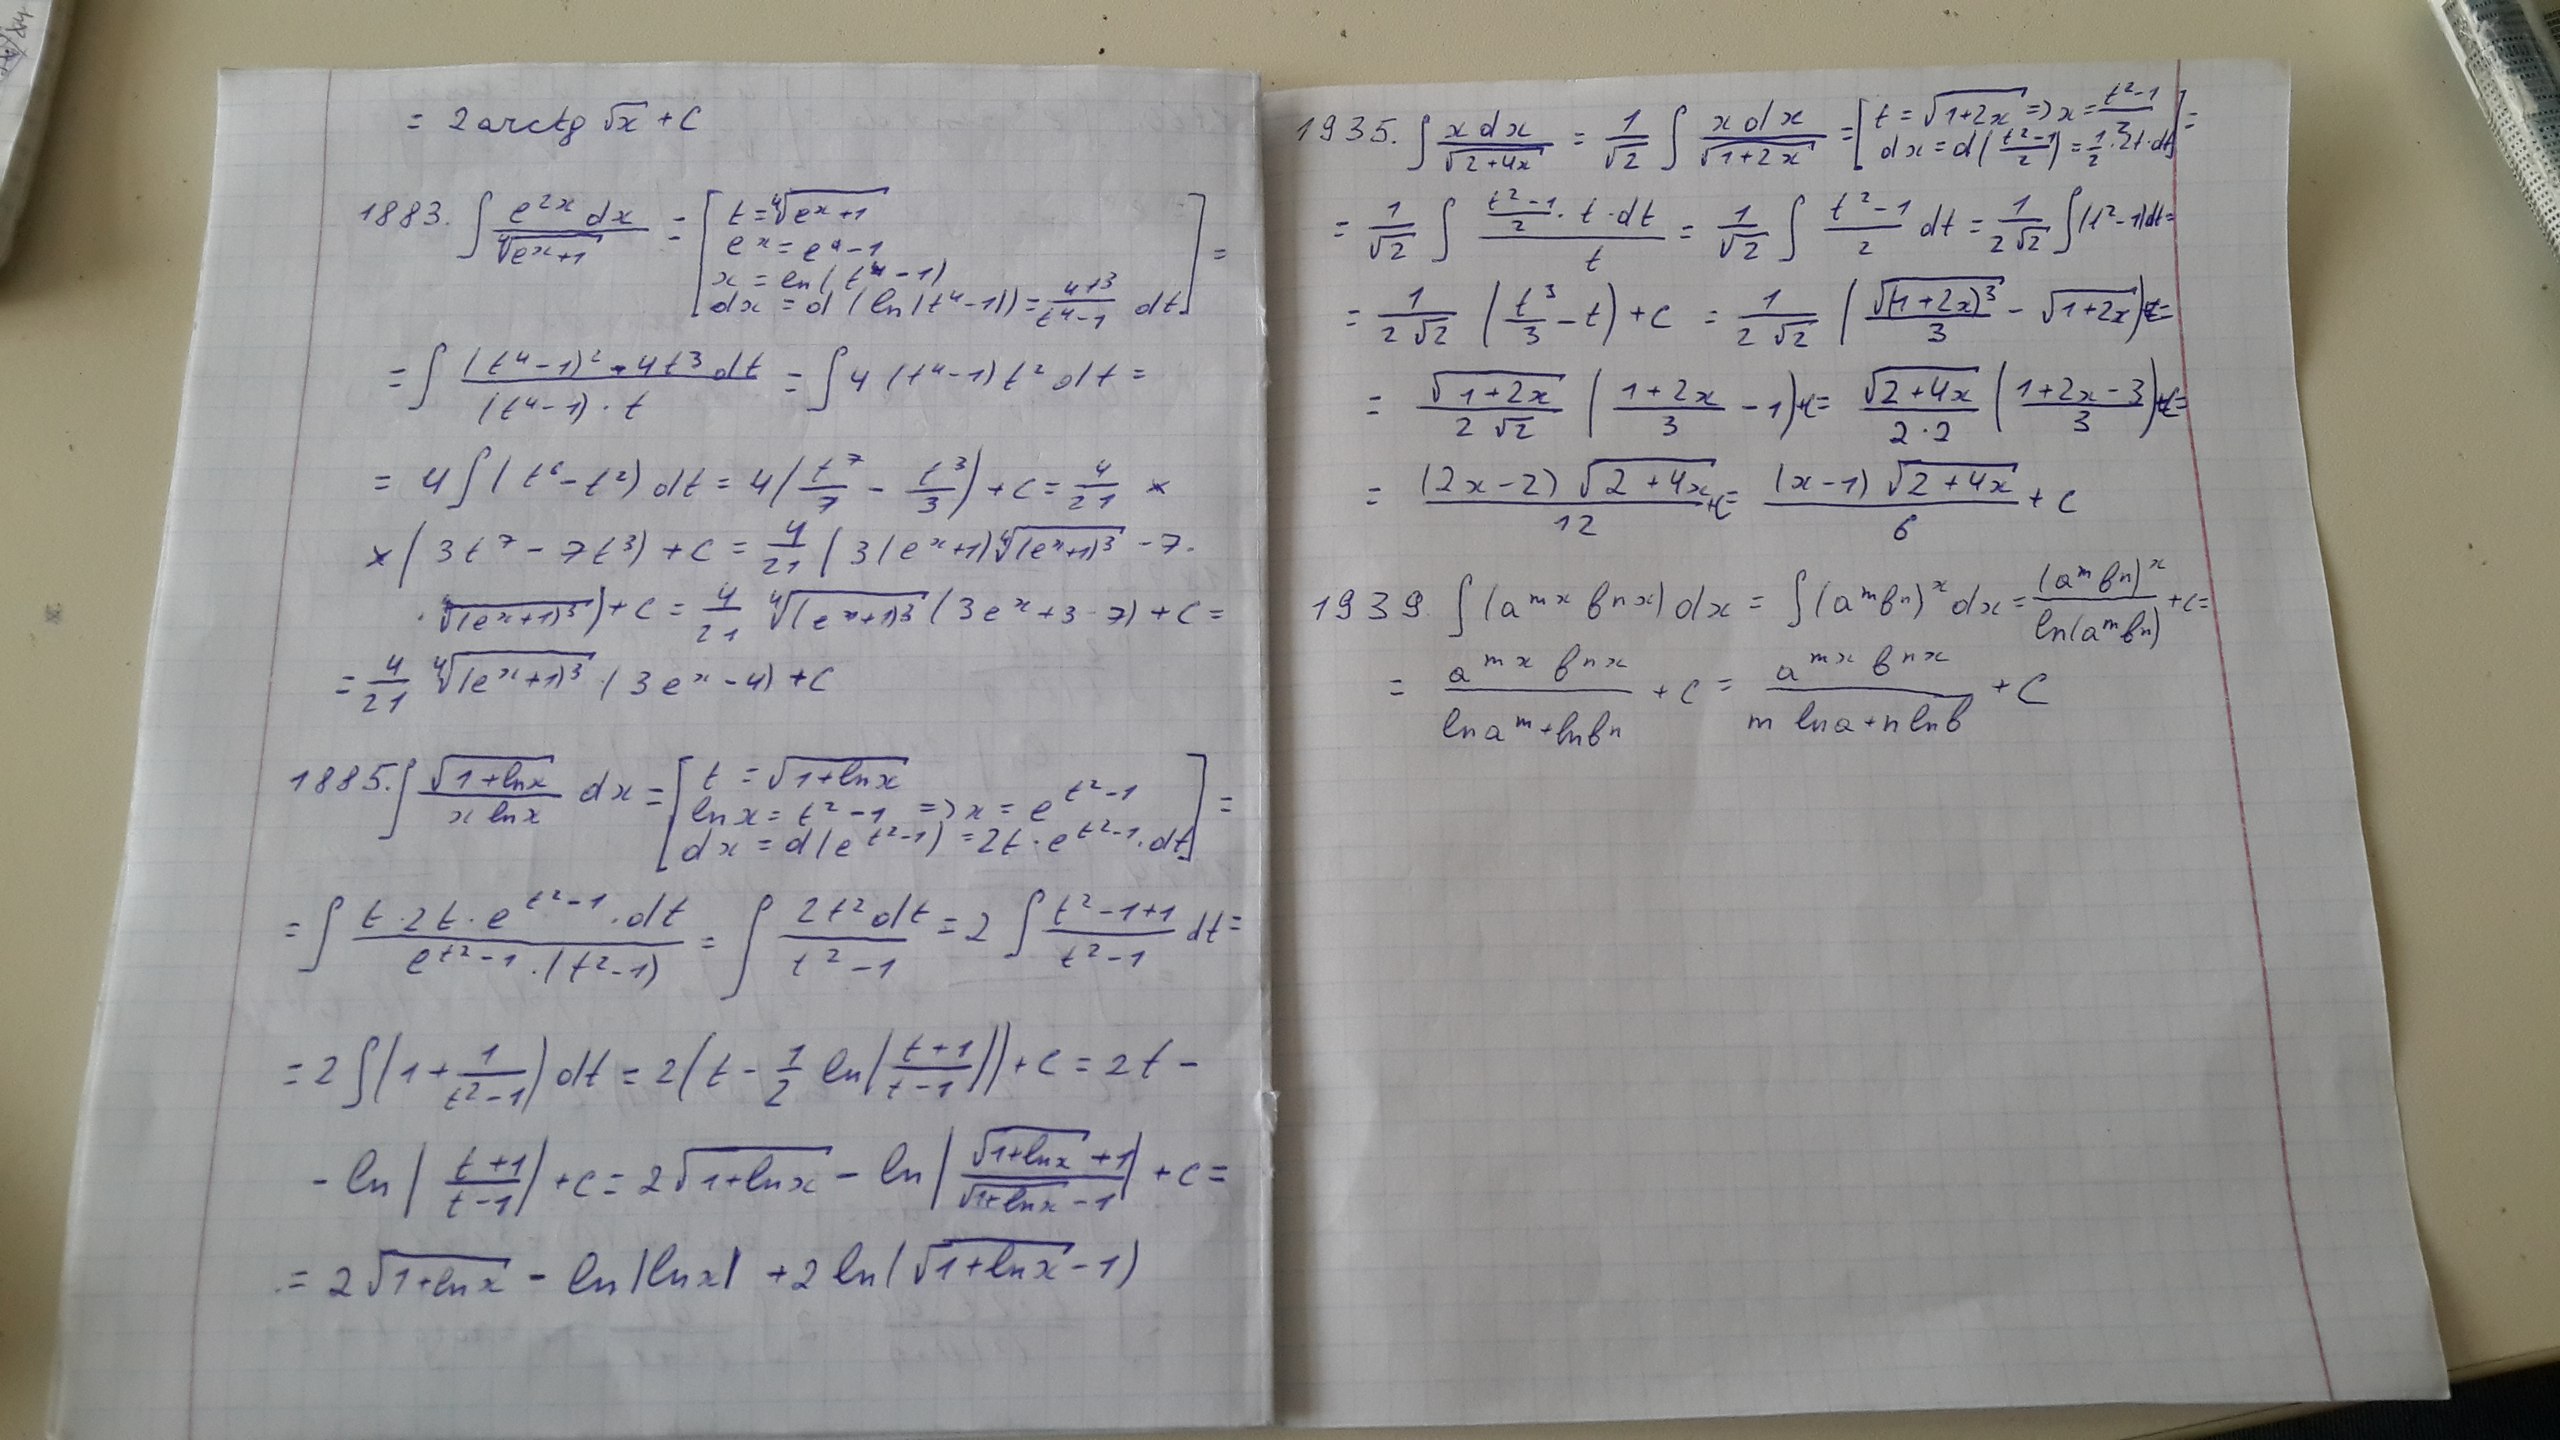 = 2 arctg √x + C
1883. ∫ e^{2x} dx / ⁴√(e^x+1) = [ t = ⁴√(e^x+1)
e^x = e⁴ − 1
x = ln(t⁴ − 1)
dx = d(ln(t⁴−1)) = 4t³/(t⁴−1) dt ] =
= ∫ (t⁴−1)² · 4t³ dt / ((t⁴−1) · t) = ∫ 4 (t⁴−1) t² dt =
= 4∫(t⁶ − t²) dt = 4(t⁷/7 − t³/3) + C = 4/21 ×
× (3t⁷ − 7t³) + C = 4/21 (3(e^x+1) ⁴√(e^x+1)³ − 7 ·
· ⁴√(e^x+1)³) + C = 4/21 ⁴√(e^x+1)³ (3e^x + 3 − 7) + C =
= 4/21 ⁴√(e^x+1)³ · (3e^x − 4) + C
1885. ∫ √(1+ln x) / (x ln x) dx = [ t = √(1+ln x)
ln x = t² − 1 => x = e^{t²−1}
dx = d(e^{t²−1}) = 2t · e^{t²−1} · dt ] =
= ∫ t · 2t · e^{t²−1} · dt / (e^{t²−1} · (t²−1)) = ∫ 2t² dt / (t² − 1) = 2 ∫ (t²−1+1)/(t²−1) dt =
= 2∫(1 + 1/(t²−1)) dt = 2(t − 1/2 ln|(t+1)/(t−1)|) + C = 2t −
− ln|(t+1)/(t−1)| + C = 2√(1+ln x) − ln|(√(1+ln x) + 1)/(√(1+ln x) − 1)| + C =
= 2√(1+ln x) − ln|ln x| + 2 ln(√(1+ln x) − 1)
1935. ∫ x dx / √(2+4x) = 1/√2 ∫ x dx / √(1+2x) = [ t = √(1+2x) => x = (t²−1)/2
dx = d((t²−1)/2) = 1/2 · 2t · dt ] =
= 1/√2 ∫ ((t²−1)/2 · t · dt) / t = 1/√2 ∫ (t²−1)/2 dt = 1/(2√2) ∫(t²−1)dt =
= 1/(2√2) (t³/3 − t) + C = 1/(2√2) (√(1+2x)³/3 − √(1+2x)) + C =
= √(1+2x)/(2√2) ((1+2x)/3 − 1) + C = √(2+4x)/(2·2) ((1+2x−3)/3) + C =
= (2x−2)√(2+4x)/12 + C = (x−1)√(2+4x)/6 + C
1939. ∫(a^{mx} b^{nx}) dx = ∫(a^m b^n)^x dx = (a^m b^n)^x / ln(a^m b^n) + C =
= a^{mx} b^{nx} / (ln a^m + ln b^n) + C = a^{mx} b^{nx} / (m ln a + n ln b) + C